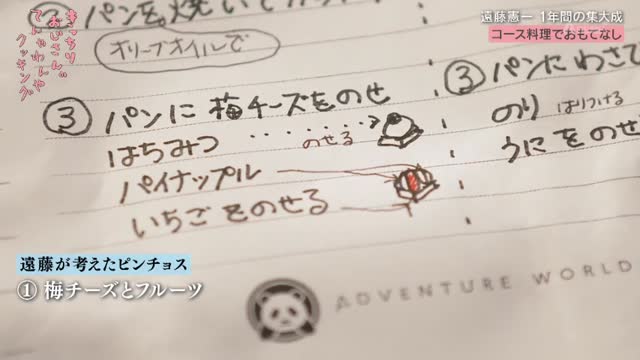 遠藤憲一 1年間の集大成
コース料理でおもてなし
きっちりおじさんの
てんやわんやクッキング
② パンを焼いて
オリーブオイルで
③ パンに梅チーズをのせ
はちみつ
のせる
パイナップル
いちごをのせる
③ パンにわさ
のり はりつける
うにをのせ
遠藤が考えたピンチョス
① 梅チーズとフルーツ
ADVENTURE WORLD